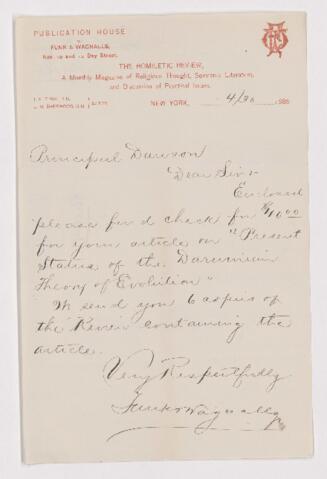 PUBLICATION HOUSE
OF
FUNK & WAGNALLS,
Nos. 10 and 12 Dey Street.
THE HOMILETIC REVIEW,
A Monthly Magazine of Religious Thought, Sermonic Literature,
and Discussion of Practical Issues.
I. K. FUNK, D.D.,
J. M. SHERWOOD, D.D.
EDITORS.
NEW YORK, 4/30 188
Principal Dawson
Dear Sir:-
Enclosed
please find check for $10.00
for your article on "Present
Status of the Darwinian
Theory of Evolution"
We send you 6 copies of
the Review containing the
article.
Very Respectfully
Funk & Wagnalls